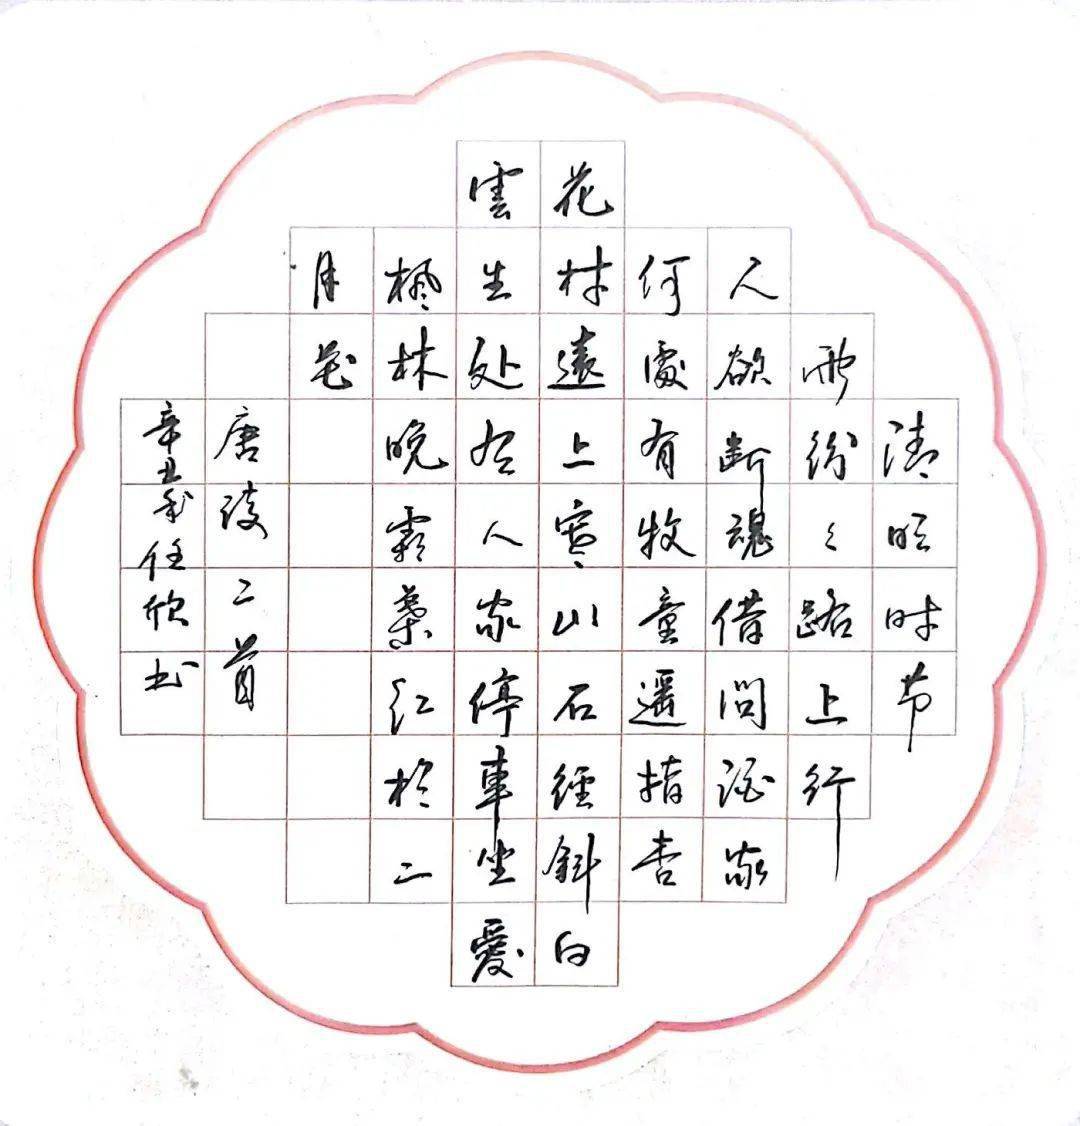 清明时节
雨纷々路上行
人欲断魂借問酒家
何處有牧童遥指杏
花村遠上寒山石徑斜白
雲生处有人家停車坐愛
枫林晚霜葉红於二
月花
唐诗二首
辛丑年任欣书